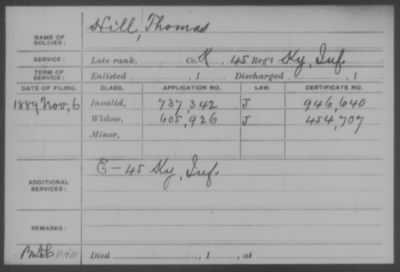 NAME OF SOLDIER: Hill, Thomas
SERVICE: Late rank, Co. K, 45 Reg't Ky, Inf.
TERM OF SERVICE: Enlisted , 1 Discharged , 1
DATE OF FILING. CLASS. APPLICATION NO. LAW. CERTIFICATE NO.
1889 Nov, 6 Invalid, 737,342 J 946,640
Widow, 605,926 J 454,707
Minor,
ADDITIONAL SERVICES: E - 45 Ky, Inf.
REMARKS:
Died , 1 , at